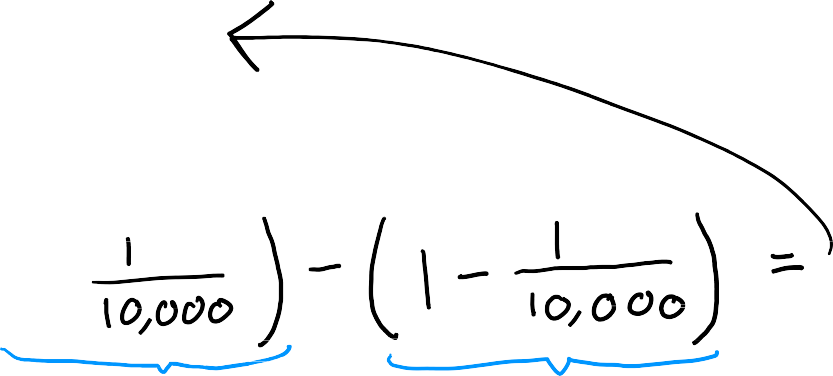 1/10,000 ) - ( 1 - 1/10,000 ) =